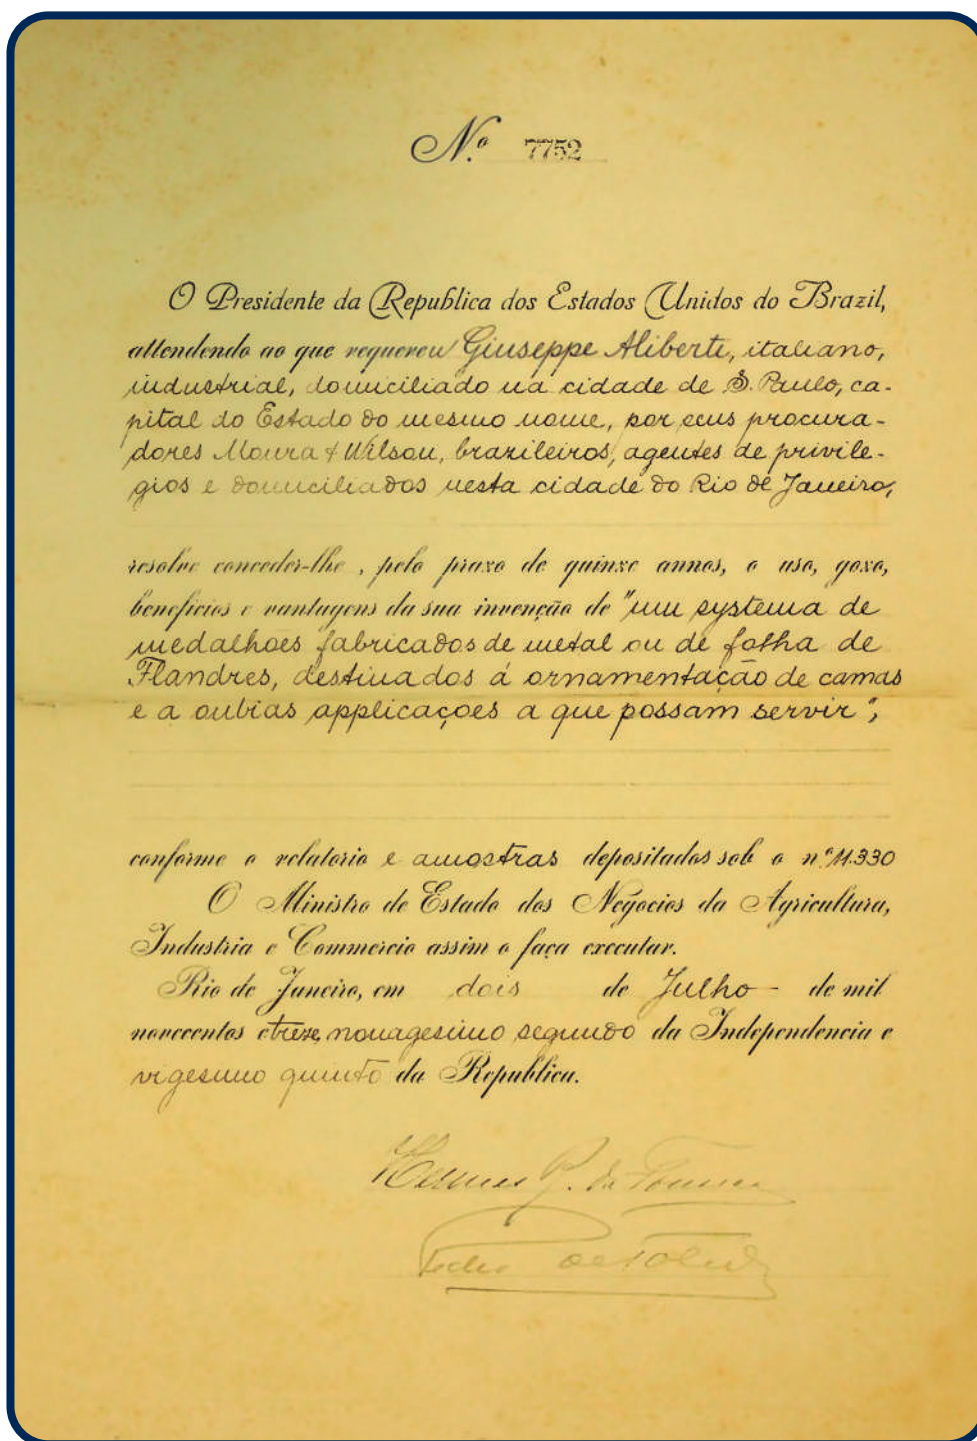 Nº 7752
O Presidente da Republica dos Estados Unidos do Brazil,
attendendo ao que requereu Giuseppe Aliberti, italiano,
industrial, domiciliado na cidade de S. Paulo, ca-
pital do Estado do mesmo nome, por seus procura-
dores Moura & Wilson, brazileiros, agentes de privile-
gios e domiciliados nesta cidade do Rio de Janeiro,
resolve conceder-lhe, pelo prazo de quinze annos, o uso, gozo,
beneficios e vantagens da sua invenção de "um systema de
medalhoes fabricados de metal ou de folha de
Flandres, destinados á ornamentação de camas
e a outras applicaçoes a que possam servir",
conforme o relatorio e amostras depositados sob o nº 11.330
O Ministro de Estado dos Negocios da Agricultura,
Industria e Commercio assim o faça executar.
Rio de Janeiro, em dois de Julho - de mil
novecentos e treze, nonagesimo segundo da Independencia e
vigesimo quinto da Republica.
Hermes R. da Fonseca
Pedro de Toledo